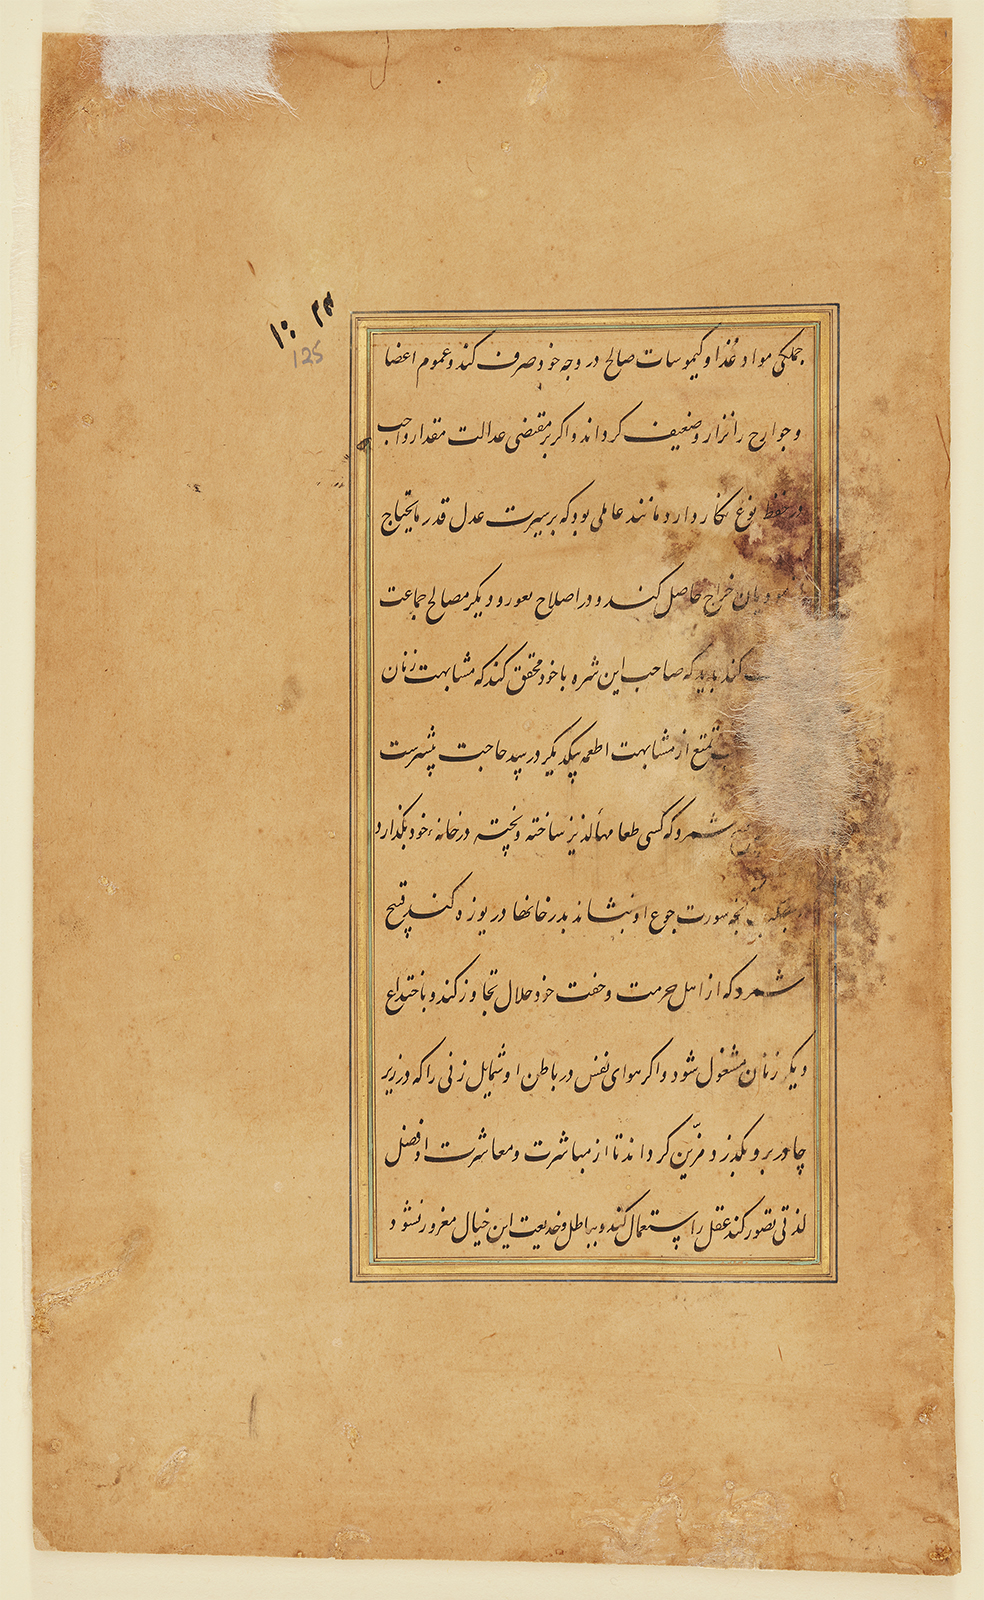 ۱۰: ۲۴
125
جملکی مواد غذا و کیموسات صالح در وجه خود صرف کند و عموم اعضا
و جوارح را نزار و ضعیف کرداند و اکر بر مقتضی عدالت مقدار واجب
در حفظ نوع بکار دارد مانند عاملی بود که بر سیرت عدل قدر مایحتاج
خراج حاصل کند و در اصلاح ثغور و دیکر مصالح جماعت
کند باید که صاحب این شره با خود محقق کند که مشابهت زنان
تمتع از مشابهت اطعمه بیکدیکر در سد حاجت بیشترست
شمرد که کسی طعامهاء لذیذ ساخته و پخته در خانهء خود بکذارد
صورت جوع او بنشاند بدر خانها دریوزه کند قبیح
شمرد که از اهل حرمت و جفت خود حلال تجاوز کند و باختداع
دیکر زنان مشغول شود و اکر هوای نفس در باطن او شمایل زنی را که در زیر
چادر برو بکذرد مزین کرداند تا از مباشرت و معاشرت او فضل
لذتی تصور کند عقل را استعمال کند و بباطل و خدیعت این خیال مغرور نشود